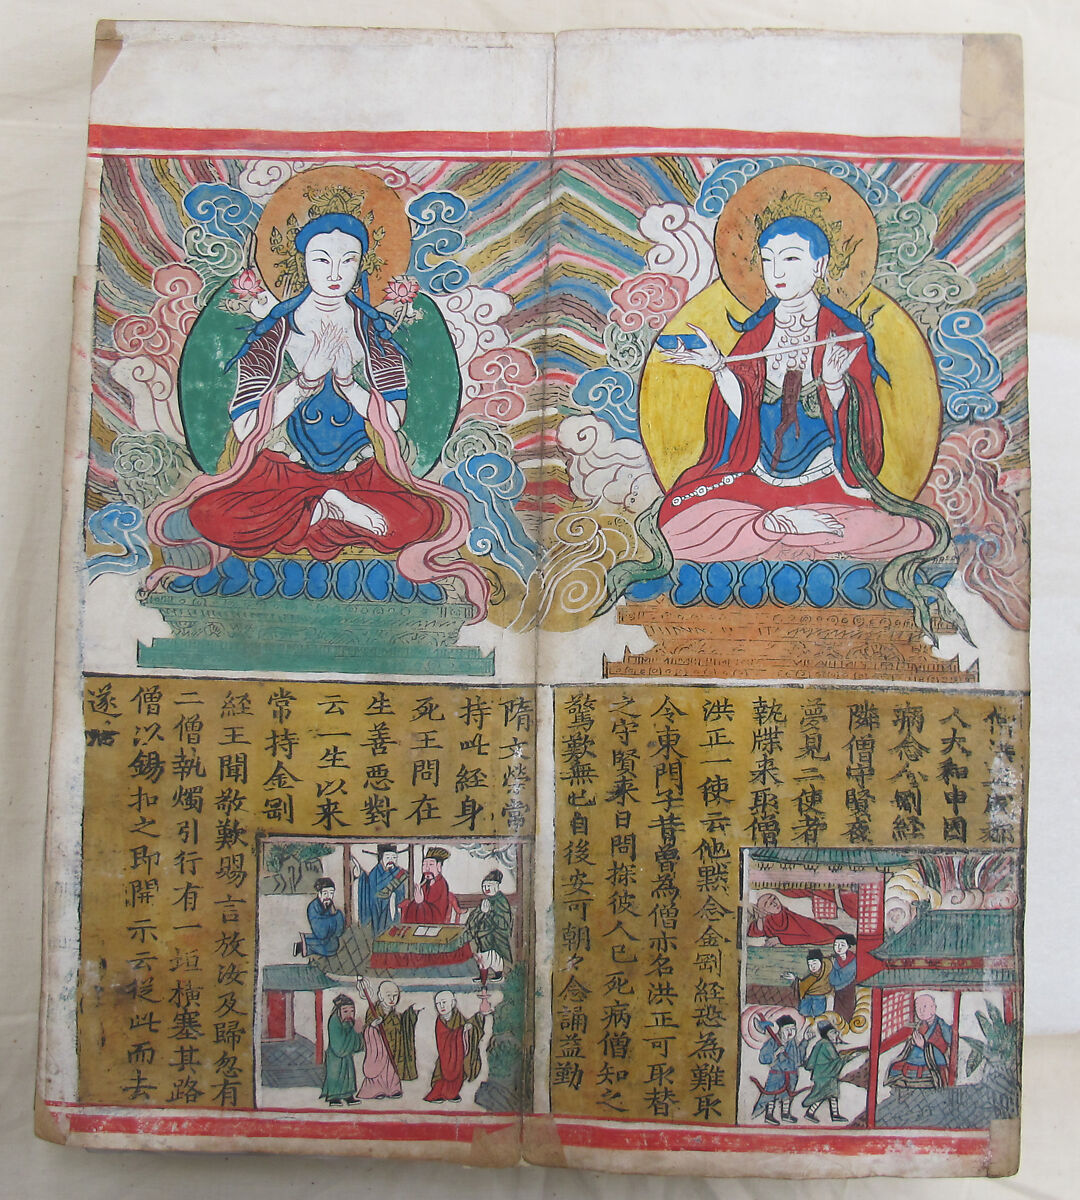 僧洪正成都
人大和申因
病念金剛經
隣僧守賢夜
夢見二使者
執牒来取僧
洪正一使云他黙念金剛經恐為難取
令東門子昔曽為僧亦名洪正可取替
之守賢来日問探彼人已死病僧知之
驚歎無已自後安可朝々念誦益勤
隋文常
持此經身
死王問在
生善惡對
云一生以来
常持金剛
經王聞敬歎賜言放汝及歸忽有
二僧執燭引行有一垣橫塞其路
僧以錫扣之即開示云從此而去
遂活